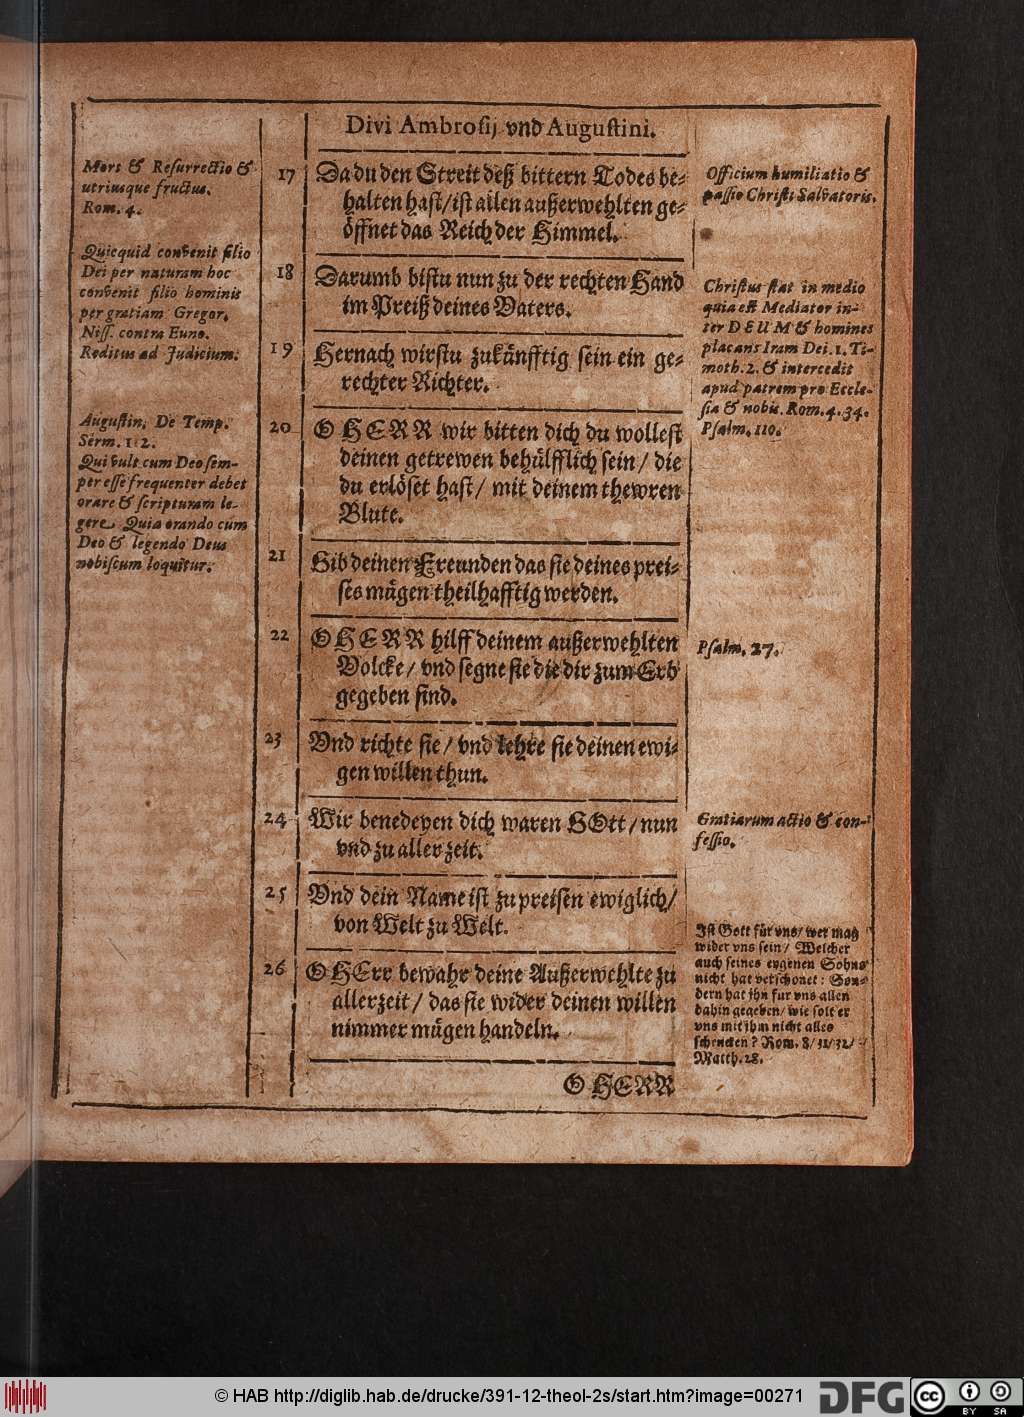 Divi Ambrosij vnd Augustini.
Mors & Resurrectio &
utriusque fructus.
Rom. 4.
Quicquid convenit filio
Dei per naturam hoc
convenit filio hominis
per gratiam Gregor.
Niss. contra Euno.
Reditus ad Judicium.
Augustin. De Temp.
Serm. 112.
Qui vult cum Deo sem-
per esse frequenter debet
orare & scripturam le-
gere. Quia orando cum
Deo & legendo Deus
nobiscum loquitur.
17 Da du den Streit deß bittern Todes be-
halten hast/ ist allen außerwehlten ge-
öffnet das Reich der Himmel.
18 Darumb bistu nun zu der rechten Hand
im Preiß deines Vaters.
19 Hernach wirstu zukänfftig sein ein ge-
rechter Richter.
20 O HERR wir bitten dich du wollest
deinen getrewen behülfflich sein/ die
du erlöset hast/ mit deinem thewren
Blute.
21 Gib deinen Freunden das sie deines prei-
ses mügen theilhafftig werden.
22 O HERR hilff deinem außerwehlten
Volcke/ vnd segne sie die dir zum Erb
gegeben sind.
23 Vnd richte sie/ vnd lehre sie deinen ewi-
gen willen thun.
24 Wir benedeyen dich waren GOtt/ nun
vnd zu aller zeit.
25 Vnd dein Name ist zu preisen ewiglich/
von Welt zu Welt.
26 O HErr bewahr deine Außerwehlte zu
allerzeit/ das sie wider deinen willen
nimmer mügen handeln.
O HERR
Officium humiliatio &
passio Christi Salvatoris.
Christus stat in medio
quia est Mediator in-
ter DEUM & homines
placans Iram Dei. 1. Ti-
moth. 2. & intercedit
apud patrem pro Eccle-
sia & nobis. Rom. 4. 34.
Psalm. 110.
Psalm. 27.
Gratiarum actio & con-
fessio.
Ist Gott für vns/ wer mag
wider vns sein/ Welcher
auch seines eygenen Sohns
nicht hat verschonet: Son-
dern hat ihn für vns allen
dahin gegeben/ wie solt er
vns mit ihm nicht alles
schencken? Rom. 8/ 31/ 32/
Matth. 28.
© HAB http://diglib.hab.de/drucke/391-12-theol-2s/start.htm?image=00271
DFG
cc BY SA